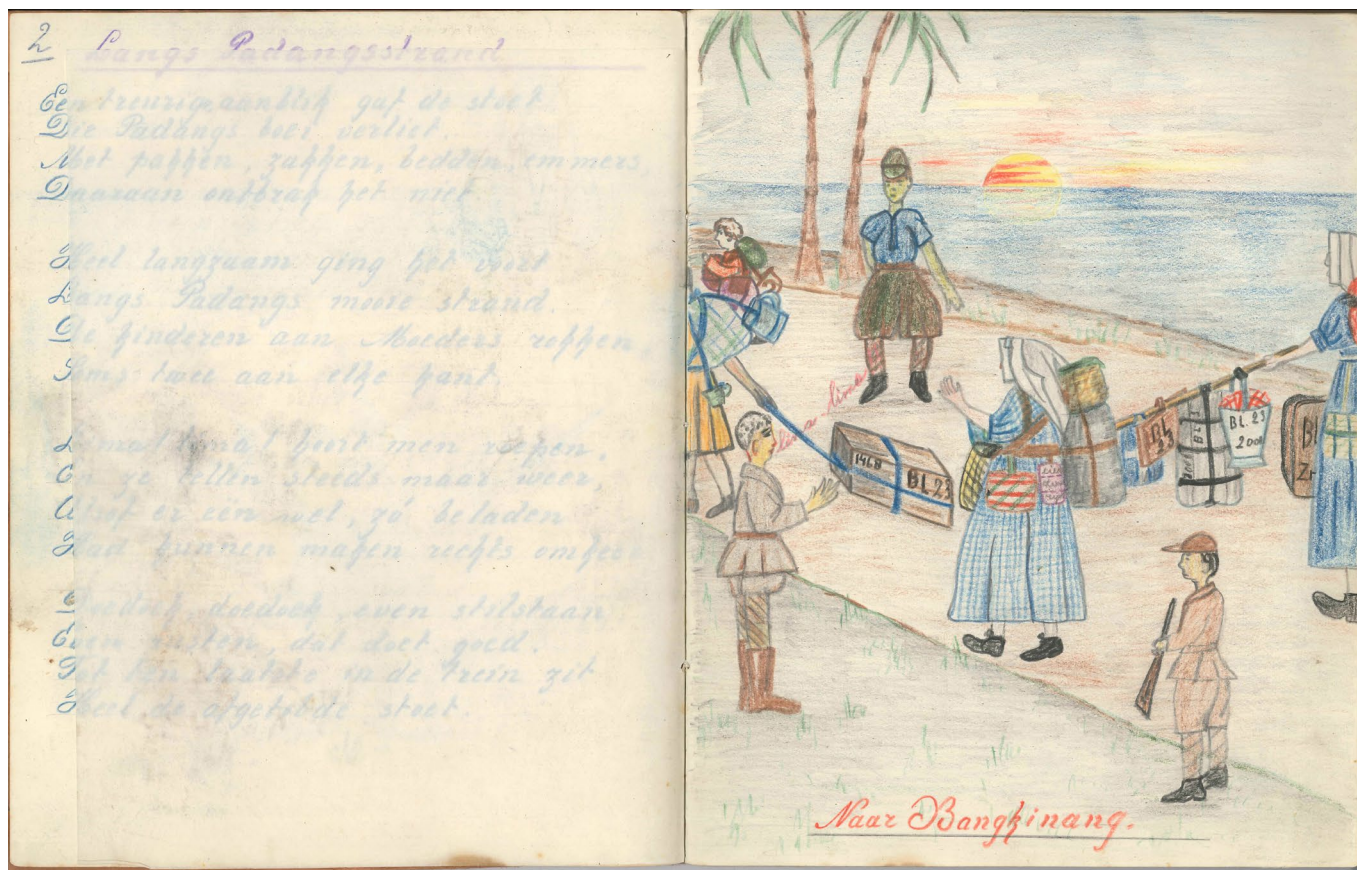 2
Langs Padangsstrand
Een treurige aanblik gaf de stoet
Die Padangs boei verliet.
Met pakken, zakken, bedden, emmers,
Daaraan ontbrak het niet.
Heel langzaam ging het voort
Langs Padangs mooie strand.
De kinderen aan Moeders rokken
Soms twee aan elke kant.
hoort men roepen,
En ze steeds maar weer,
er één wel, zó beladen
Had kunnen maken rechts
doedoek, even stilstaan
Even rusten, dat doet goed.
Tot ten in de trein zit
Heel de stoet.
lima-lima
1468
BL. 23
BL. 23
BL. 23
200
Naar Bangkinang.